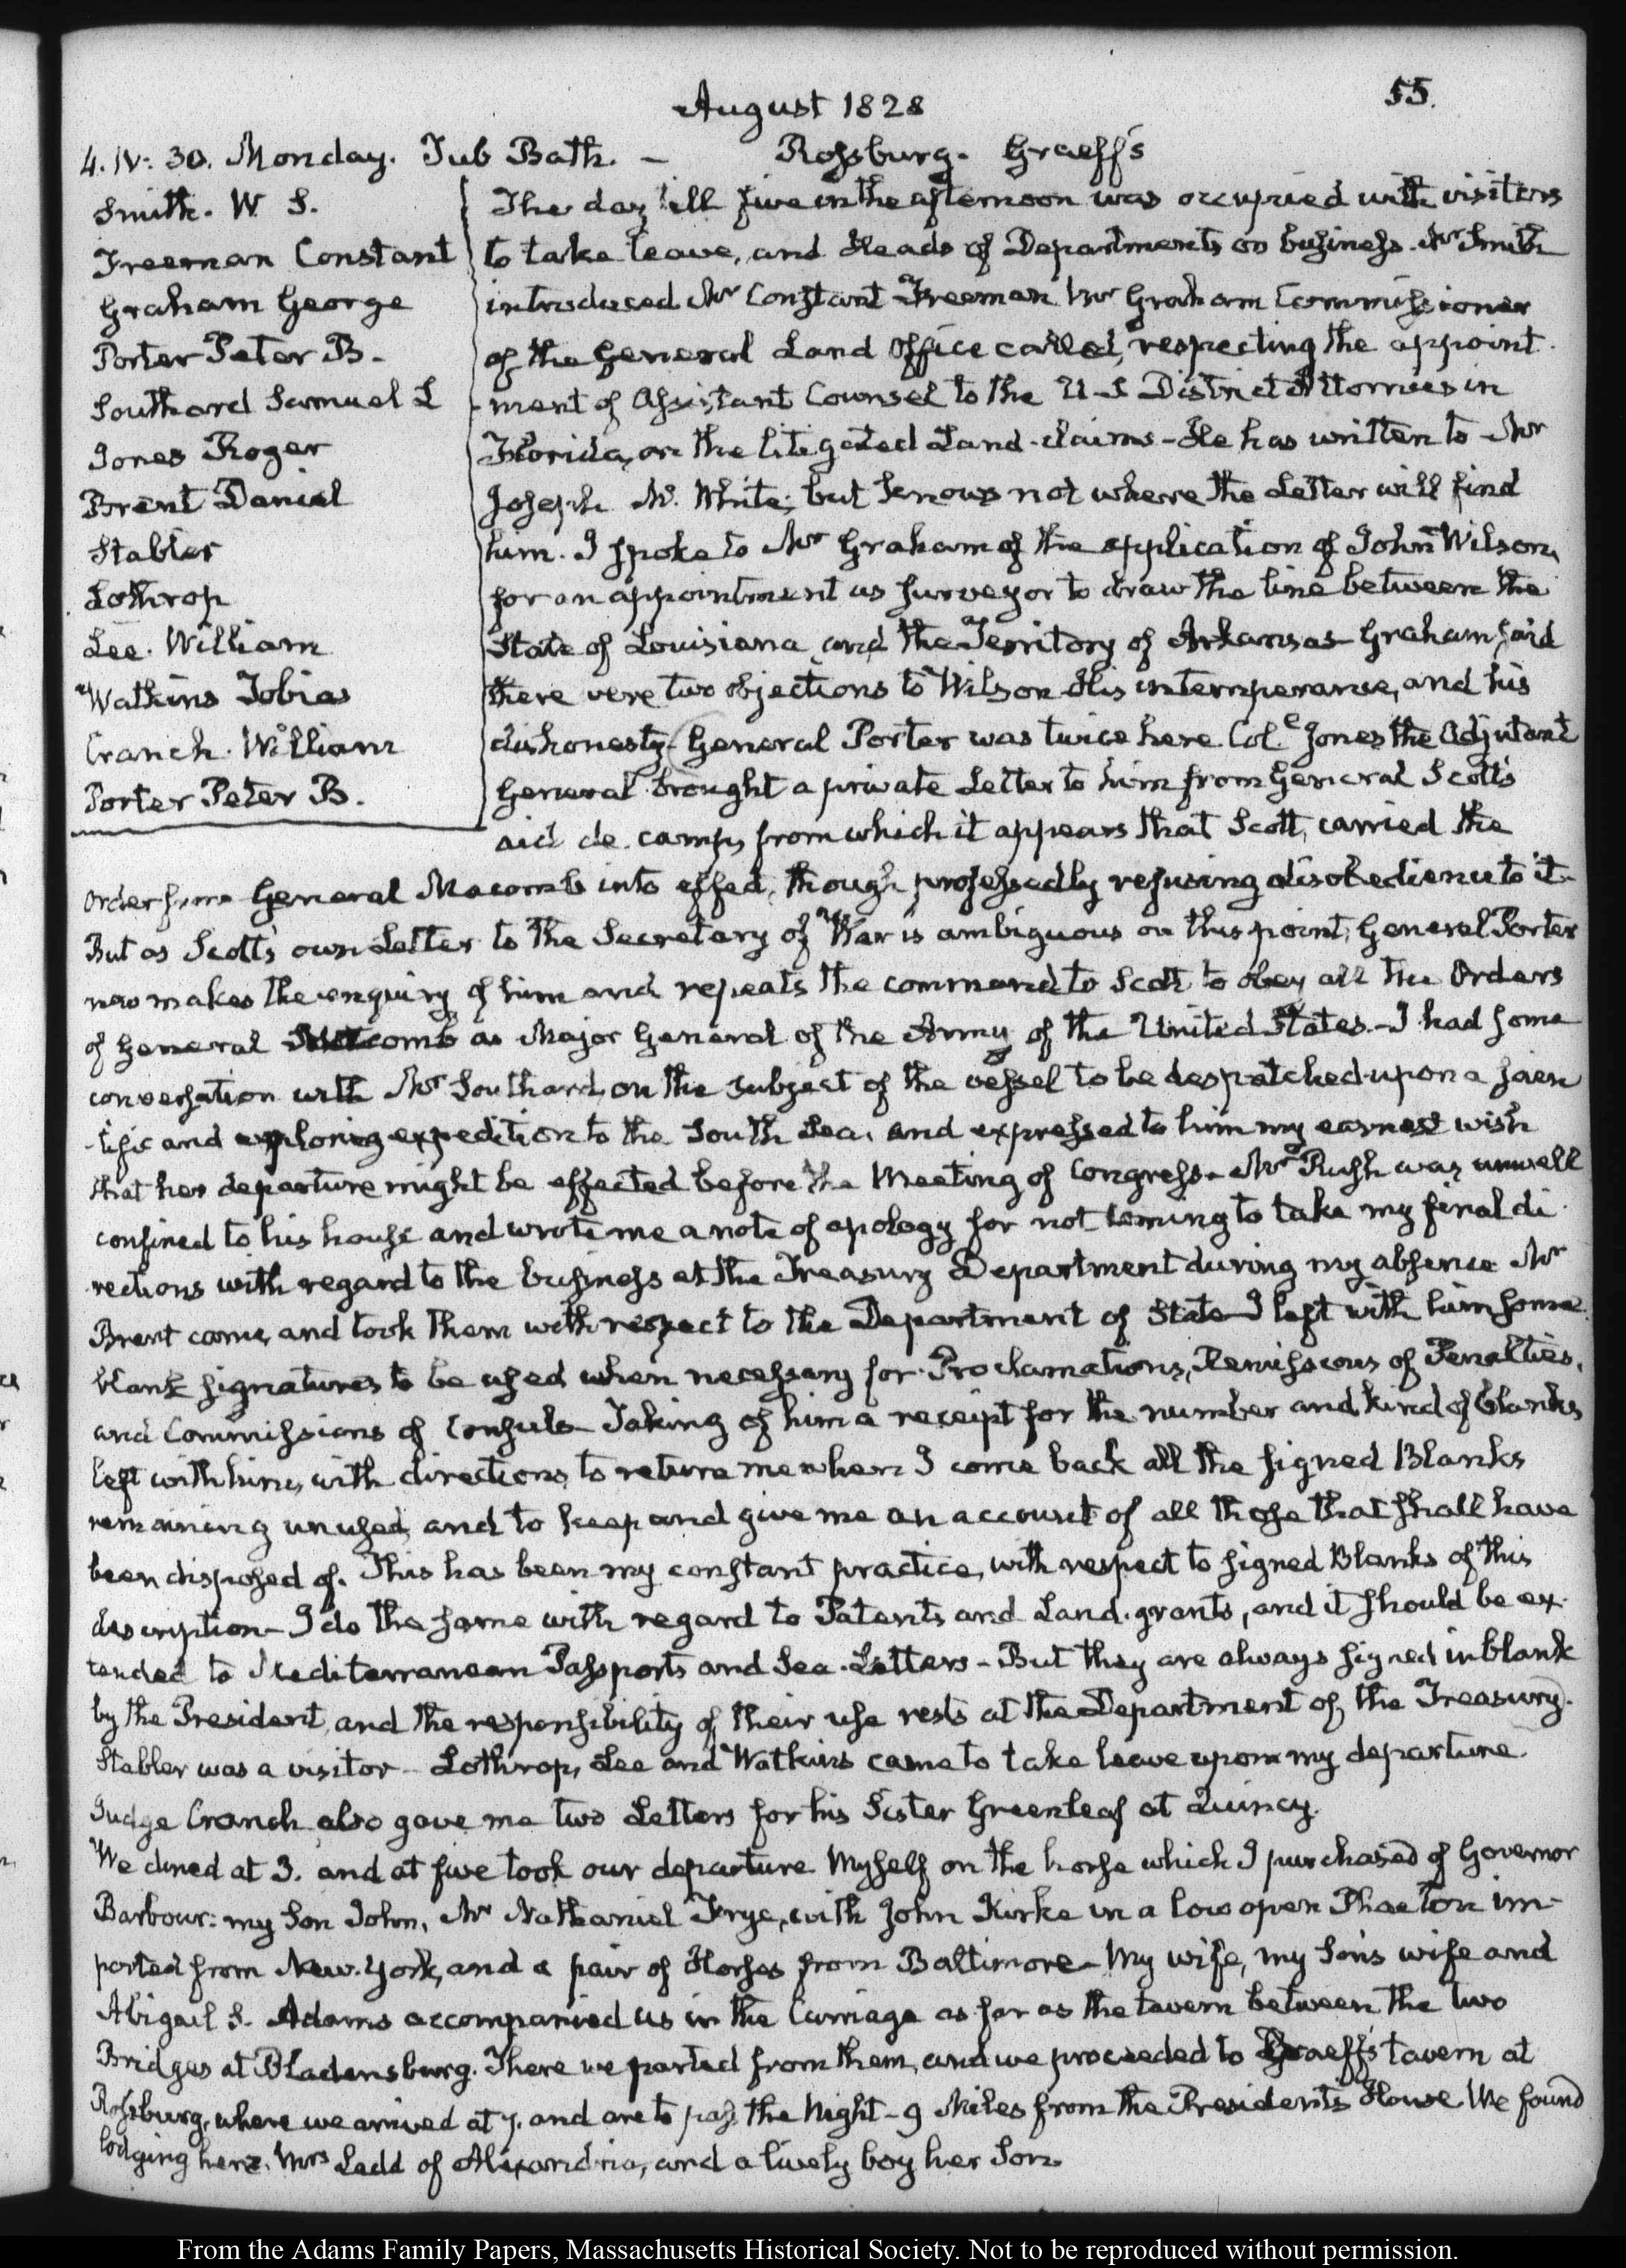 August 1828
55.
4. IV: 30. Monday. Tub Bath. – Rossburg. Graeff's
Smith. W. S.
Freeman Constant
Graham George
Porter Peter B.
Southard Samuel L
Jones Roger
Brent Daniel
Stabler
Lothrop
Lee. William
Watkins Tobias
Cranch. William
Porter Peter B.
The day till five in the afternoon was occupied with visiters
to take leave, and Heads of Departments on business. Mr Smith
introduced Mr Constant Freeman Mr Graham Commissioner
of the General Land Office called, respecting the appoint-
ment of Assistant Counsel to the U.S District Attornies in
Florida, on the litigated Land-claims – He has written to Mr
Joseph M. White; but knows not where the Letter will find
him. I spoke to Mr Graham of the application of John Wilson,
for an appointment as Surveyor to draw the line between the
State of Louisiana and the Territory of Arkansas – Graham said
there were two objections to Wilson His intemperance, and his
dishonesty – General Porter was twice here. Col. Jones the Adjutant
General brought a private Letter to him from General Scott's
aid de camp, from which it appears that Scott, carried the
order from General Macomb into effect, though professedly refusing disobedience to it –
But as Scott's own Letter to the Secretary of War is ambiguous on this point, General Porter
now makes the enquiry of him and repeats the command to Scott to obey all the Orders
of General Macomb as Major General of the Army of the United States. – I had some
conversation with Mr Southard, on the subject of the vessel to be despatched upon a scien
tific and exploring expedition to the South Sea, and expressed to him my earnest wish
that her departure might be effected before the Meeting of Congress – Mr Rush was unwell
confined to his house and wrote me a note of apology for not coming to take my final di-
rections with regard to the business at the Treasury Department during my absence Mr
Brent came, and took them with respect to the Department of State – I left with him some
blank signatures to be used when necessary for Proclamations, Remissions of Penalties,
and Commissions of Consuls – Taking of him a receipt for the number and kind of blanks
left with him, with directions to return me when I come back all the signed Blanks
remaining unused, and to keep and give me an account of all those that shall have
been disposed of. This has been my constant practice, with respect to signed Blanks of this
description – I do the same with regard to Patents and Land-grants, and it should be ex-
tended to Mediterranean Passports and Sea-Letters – But they are always signed in blank
by the President, and the responsibility of their use rests at the Department of the Treasury.
Stabler was a visitor – Lothrop, Lee and Watkins came to take leave upon my departure.
Judge Cranch also gave me two Letters for his Sister Greenleaf at Quincy.
We dined at 3. and at five took our departure Myself on the horse which I purchased of Governor
Barbour: my Son John, Mr Nathaniel Frye, with John Kirke in a low open Phaeton im-
ported from New-York, and a pair of Horses from Baltimore – My wife, my Son's wife and
Abigail S. Adams accompanied us in the Carriage as far as the tavern between the two
Bridges at Bladensburg. There we parted from them, and we proceeded to Graeff's tavern at
Rossburg, where we arrived at 7. and are to pass the Night – 9 Miles from the President's House We found
lodging here, Mrs Ladd of Alexandria, and a lively boy her Son.
From the Adams Family Papers, Massachusetts Historical Society. Not to be reproduced without permission.